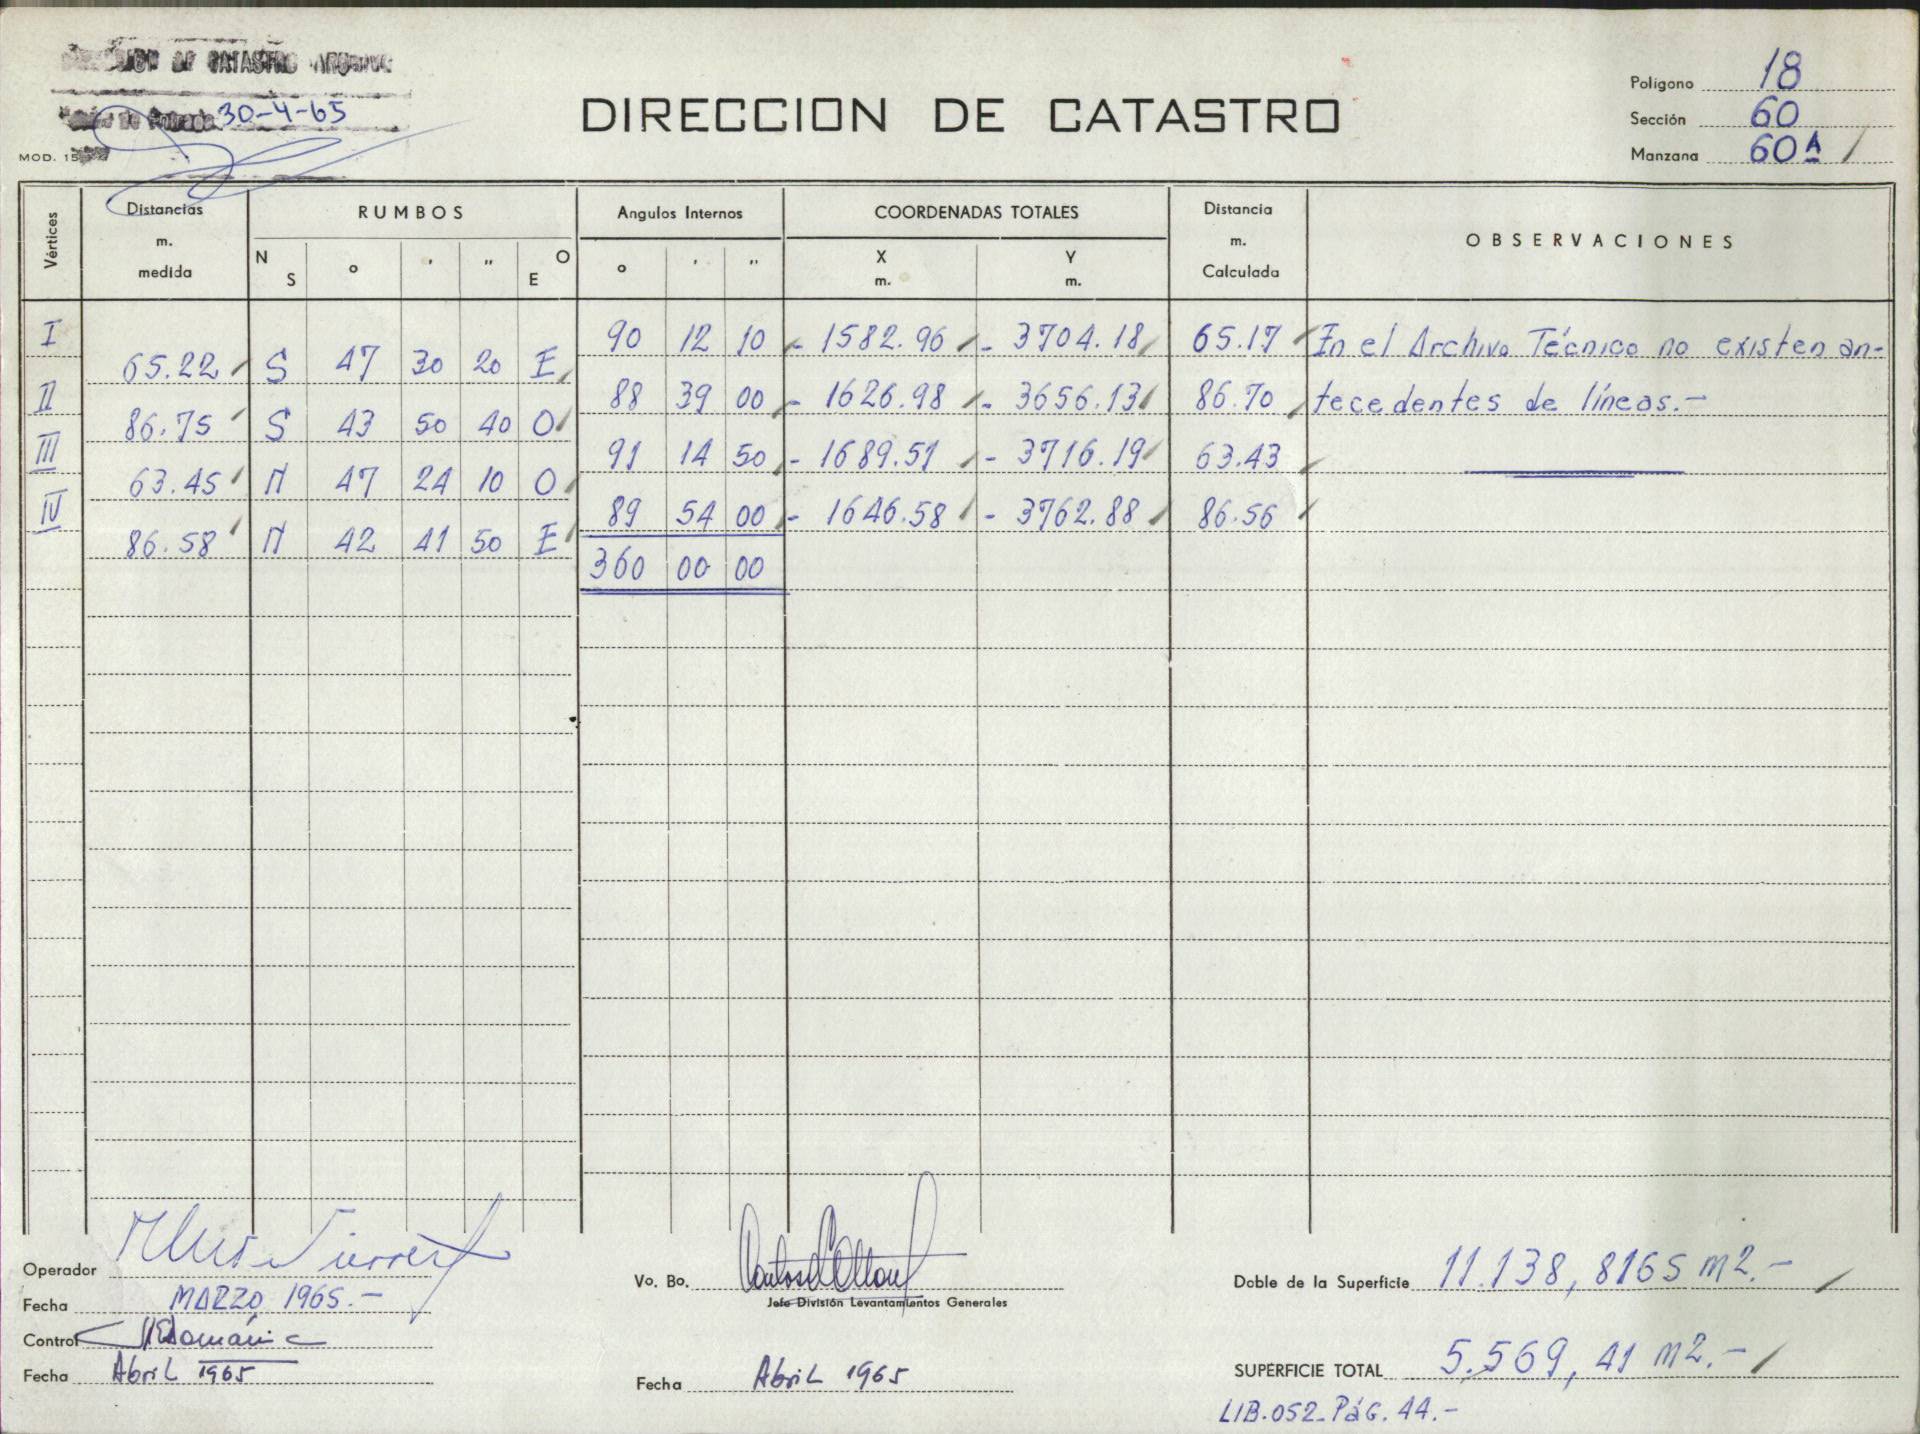 DE CATASTRO
30-4-65
MOD. 15
DIRECCION DE CATASTRO
Polígono 18
Sección 60
Manzana 60 A
Vértices
Distancias m. medida
RUMBOS
N S ° ' " O E
Angulos Internos
° ' "
COORDENADAS TOTALES
X m. Y m.
Distancia m. Calculada
OBSERVACIONES
I 90 12 10 - 1582.96 - 3704.18 65.17 En el Archivo Técnico no existen an-
65.22 S 47 30 20 E
II 88 39 00 - 1626.98 - 3656.13 86.70 tecedentes de líneas.-
86.75 S 43 50 40 O
III 91 14 50 - 1689.51 - 3716.19 63.43
63.45 N 47 24 10 O
IV 89 54 00 - 1646.58 - 3762.88 86.56
86.58 N 42 41 50 E
360 00 00
Operador
Fecha MARZO 1965.-
Control
Fecha Abril 1965
Vo. Bo.
Jefe División Levantamientos Generales
Fecha Abril 1965
Doble de la Superficie 11.138,8165 m2.-
SUPERFICIE TOTAL 5.569,41 m2.-
LIB.052-PáG.44.-